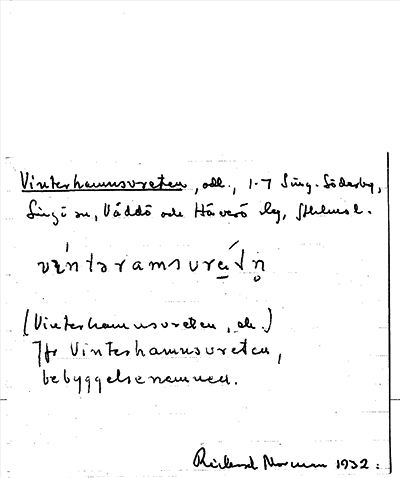 Vinterhamnsvreten, odl., 1-7 Sing-Söderby,
Singö sn, Väddö och Häverö lag, Sthlms l.
(Vinterhamnsvreten, ode.)
Jfr Vinterhamnsvreten,
bebyggelsenamnen.
Rickard Norman 1932.